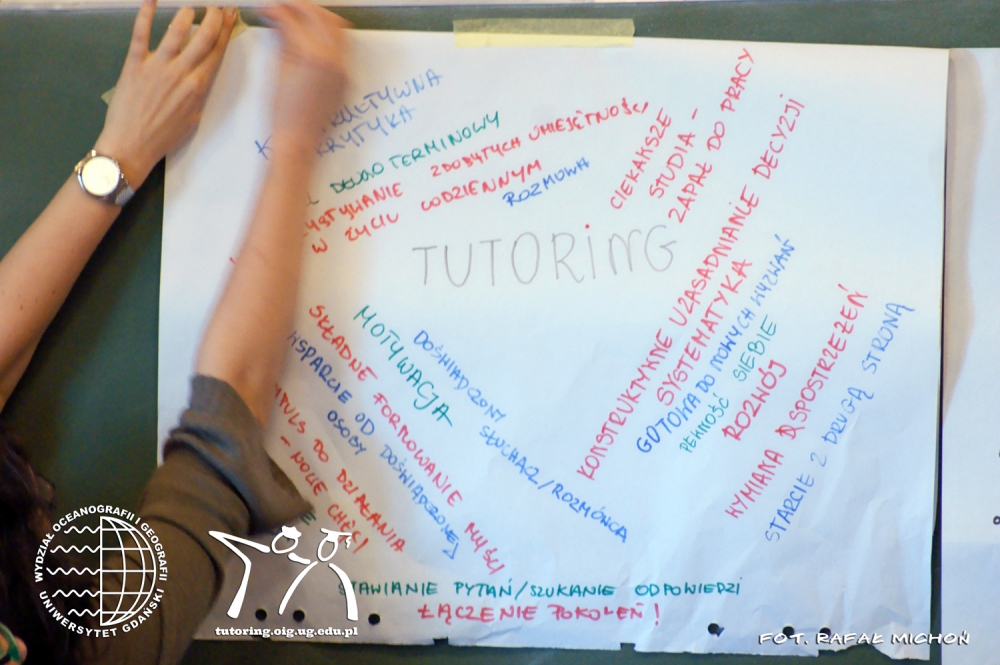 KRYTYKA
DŁUGOTERMINOWY
ZDOBYTYCH UMIEJĘTNOŚCI
W ŻYCIU CODZIENNYM
ROZMOWA
CIEKAWSZE
STUDIA -
ZAPAŁ DO PRACY
TUTORING
KONSTRUKTYWNE UZASADNIANIE DECYZJI
SYSTEMATYKA
GOTOWA DO NOWYCH WYZWAŃ
PEWNOŚĆ SIEBIE
ROZWÓJ
WYMIANA SPOSTRZEŻEŃ
STARCIE Z DRUGĄ STRONĄ
DOŚWIADCZONY SŁUCHACZ/ROZMÓWCA
MOTYWACJA
SKŁADNE FORMOWANIE MYŚLI
WSPARCIE OD
OSOBY DOŚWIADCZONEJ
DO DZIAŁANIA
- NOWE CHĘCI
STAWIANIE PYTAŃ/SZUKANIE ODPOWIEDZI
ŁĄCZENIE POKOLEŃ!
WYDZIAŁ OCEANOGRAFII I GEOGRAFII
UNIWERSYTET GDAŃSKI
tutoring.oig.ug.edu.pl
FOT. RAFAŁ MICHOŃ